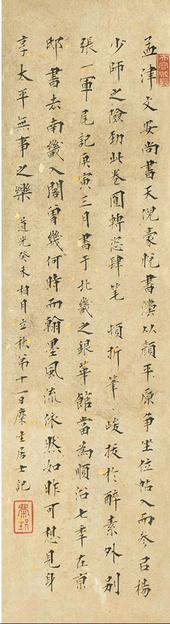 孟津文安尚書天倪豪恍書溯以顏平原爭坐位帖入而參召楊
少師之險勁此卷圓轉恣肆筆頓折筆峻拔於醉素外別
張一軍尾記庚寅三月書于北畿之銀華館當為順治七年在京
邸書去南畿入閣曾幾何時而翰墨風流依然如昨可想見身
享太平無事之樂 道光癸未相月立秋第十一日 居士記